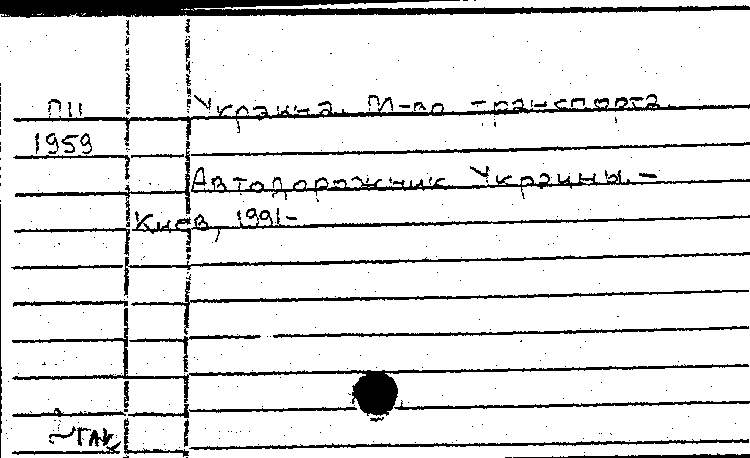 П11 Украина. М-во транспорта.
1959
Автодорожник Украины. –
Киев, 1991-